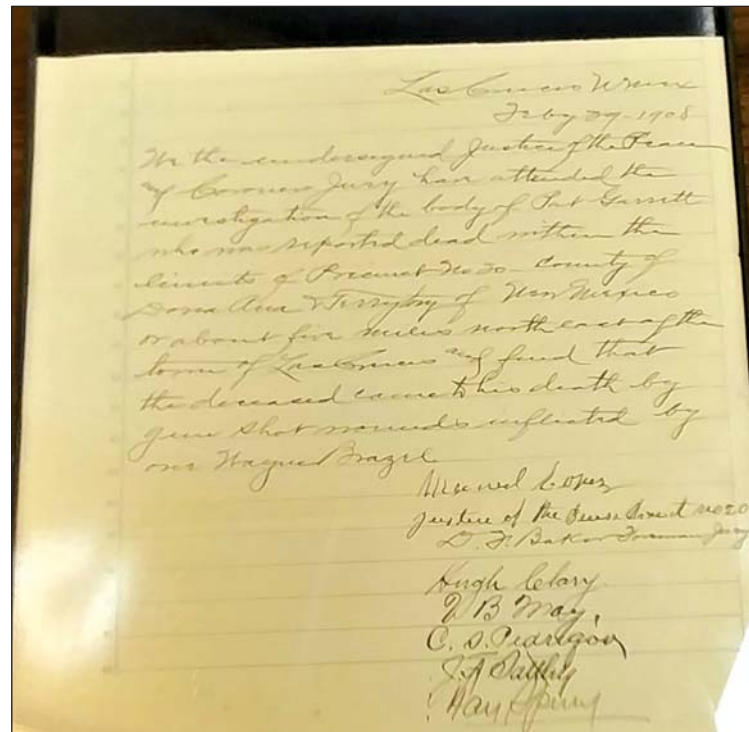 Las Cruces N Mex
Feby 29-1908
We the undersigned Justice of the Peace
and Coroners Jury have attended the
investigation of the body of Pat Garrett
who was reported dead within the
limits of Precinct No 20 - County of
Dona Ana & Territory of New Mexico
on about five miles northeast of the
town of Las Cruces and find that
the deceased came to his death by
gun shot wounds inflicted by
one Wayne Brazel
Manuel Lopez
Justice of the Peace Precinct No 20
D. F. Baker Foreman Jury
Hugh Clary
B May
C. S. Pedragon